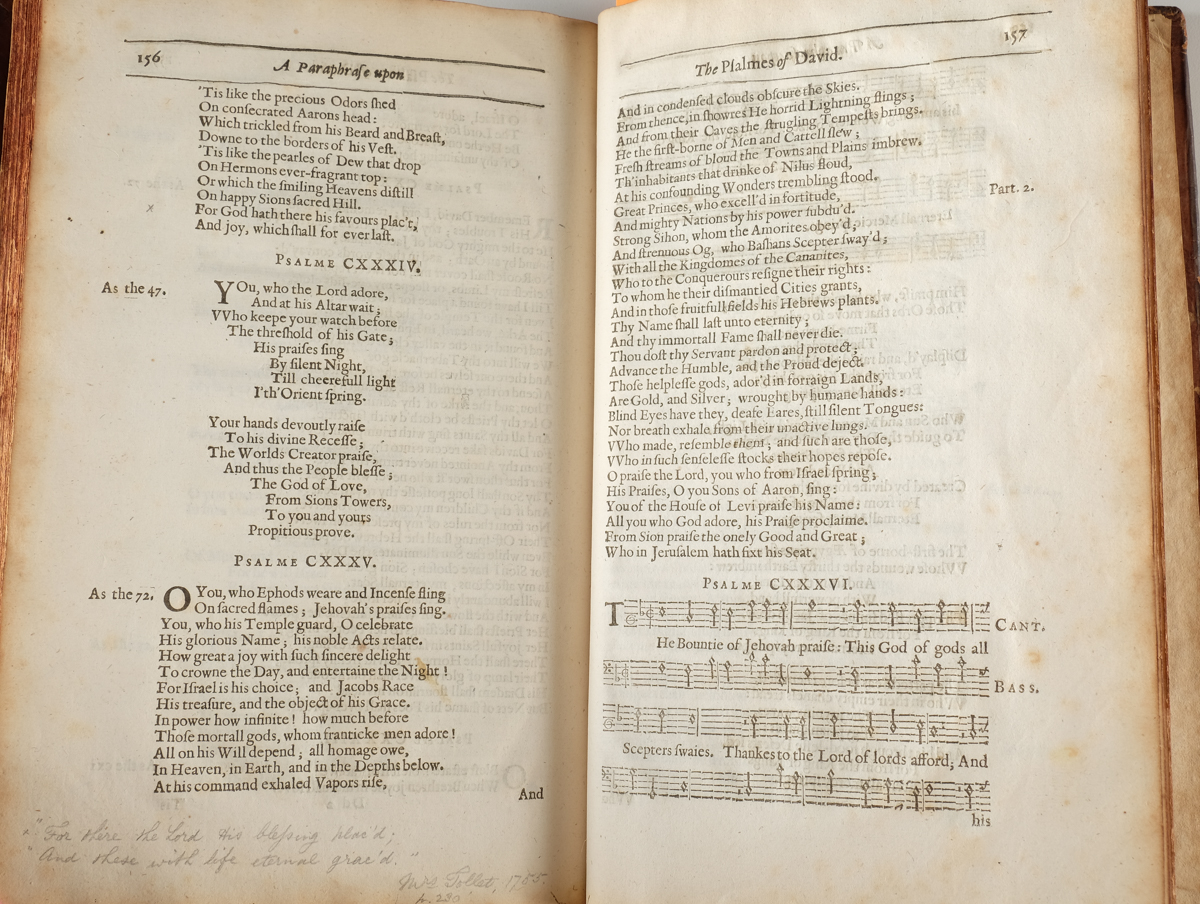 156
A Paraphrase upon
'Tis like the precious Odors shed
On consecrated Aarons head:
Which trickled from his Beard and Breast,
Downe to the borders of his Vest.
'Tis like the pearles of Dew that drop
On Hermons ever-fragrant top:
Or which the smiling Heavens distill
On happy Sions sacred Hill.
For God hath there his favours plac't,
And joy, which shall for ever last.
PSALME CXXXIV.
As the 47.
YOu, who the Lord adore,
And at his Altar wait;
VVho keepe your watch before
The threshold of his Gate;
His praises sing
By silent Night,
Till cheerefull light
I'th'Orient spring.
Your hands devoutly raise
To his divine Recesse;
The Worlds Creator praise,
And thus the People blesse;
The God of Love,
From Sions Towers,
To you and yours
Propitious prove.
PSALME CXXXV.
As the 72.
O You, who Ephods weare and Incense fling
On sacred flames; Jehovah's praises sing.
You, who his Temple guard, O celebrate
His glorious Name; his noble Acts relate.
How great a joy with such sincere delight
To crowne the Day, and entertaine the Night!
For Israel is his choice; and Jacobs Race
His treasure, and the object of his Grace.
In power how infinite! how much before
Those mortall gods, whom franticke men adore!
All on his Will depend; all homage owe,
In Heaven, in Earth, and in the Depths below.
At his command exhaled Vapors rise,
And
"For there the Lord His blessing plac'd;
"And these with life eternal grac'd."
Mrs Tollet, 1755.
p. 230
The Psalmes of David.
157
And in condensed clouds obscure the Skies.
From thence, in showres He horrid Lightning flings;
And from their Caves the strugling Tempests brings.
He the first-borne of Men and Cattell slew;
Fresh streams of bloud the Towns and Plains imbrew.
Th'inhabitants that drinke of Nilus floud,
At his confounding Wonders trembling stood.
Part. 2.
Great Princes, who excell'd in fortitude,
And mighty Nations by his power subdu'd.
Strong Sihon, whom the Amorites obey'd;
And strenuous Og, who Bashans Scepter sway'd;
With all the Kingdomes of the Cananites,
Who to the Conquerours resigne their rights:
To whom he their dismantled Cities grants,
And in those fruitfull fields his Hebrews plants.
Thy Name shall last unto eternity;
And thy immortall Fame shall never die.
Thou dost thy Servant pardon and protect;
Advance the Humble, and the Proud deject.
Those helplesse gods, ador'd in forraign Lands,
Are Gold, and Silver; wrought by humane hands:
Blind Eyes have they, deafe Eares, still silent Tongues:
Nor breath exhale from their unactive lungs.
VVho made, resemble them; and such are those,
VVho in such senselesse stocks their hopes repose.
O praise the Lord, you who from Israel spring;
His Praises, O you Sons of Aaron, sing:
You of the House of Levi praise his Name:
All you who God adore, his Praise proclaime.
From Sion praise the onely Good and Great;
Who in Jerusalem hath fixt his Seat.
PSALME CXXXVI.
T
CANT.
He Bountie of Jehovah praise: This God of gods all
BASS.
Scepters swaies. Thankes to the Lord of lords afford; And
his